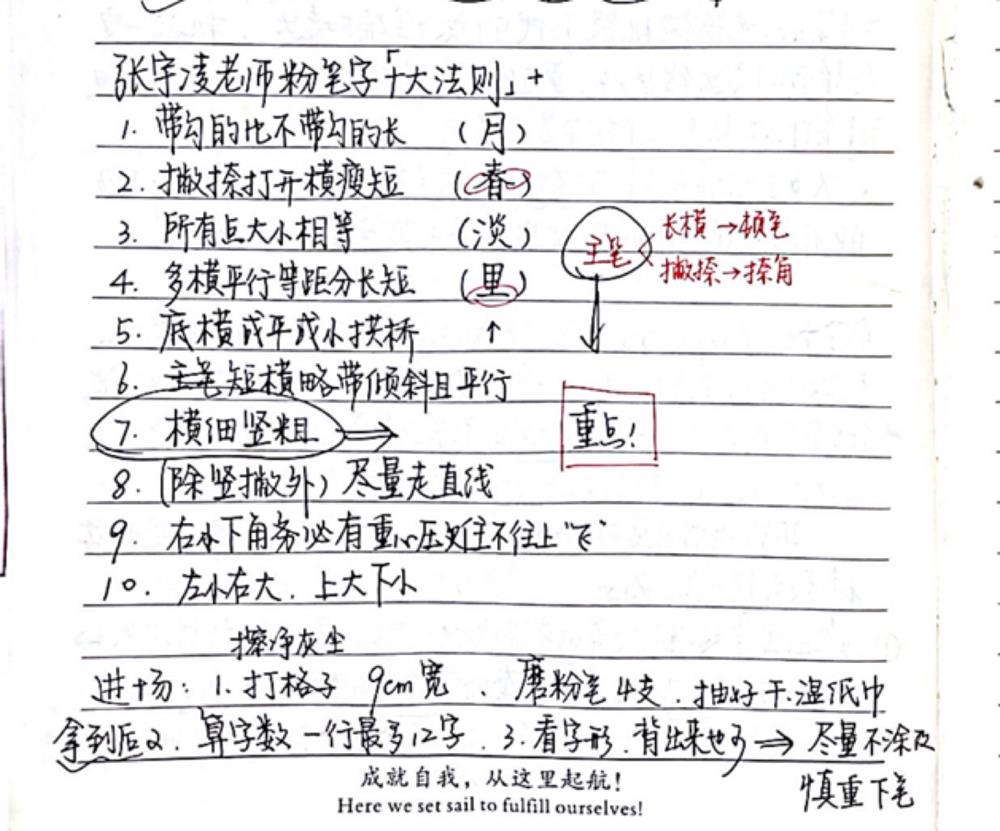 张宇凌老师粉笔字「十大法则」+
1. 带勾的比不带勾的长 (月)
2. 撇捺打开横瘦短 (春)
3. 所有点大小相等 (淡)
主笔
长横→顿笔
撇捺→捺角
4. 多横平行等距分长短 (里)
5. 底横或平或小拱桥 ↑
6. 主笔短横略带倾斜且平行
7. 横细竖粗 ⇒
重点!
8. (除竖撇外) 尽量走直线
9. 右下角务必有重心压住不往上"飞"
10. 左小右大. 上大下小
擦净灰尘
进场: 1. 打格子 9cm宽 、磨粉笔4支. 抽好干.湿纸巾
拿到后2. 算字数一行最多12字 . 3. 看字形.背出来也可⇒ 尽量不涂改
慎重下笔
成就自我,从这里起航!
Here we set sail to fulfill ourselves!